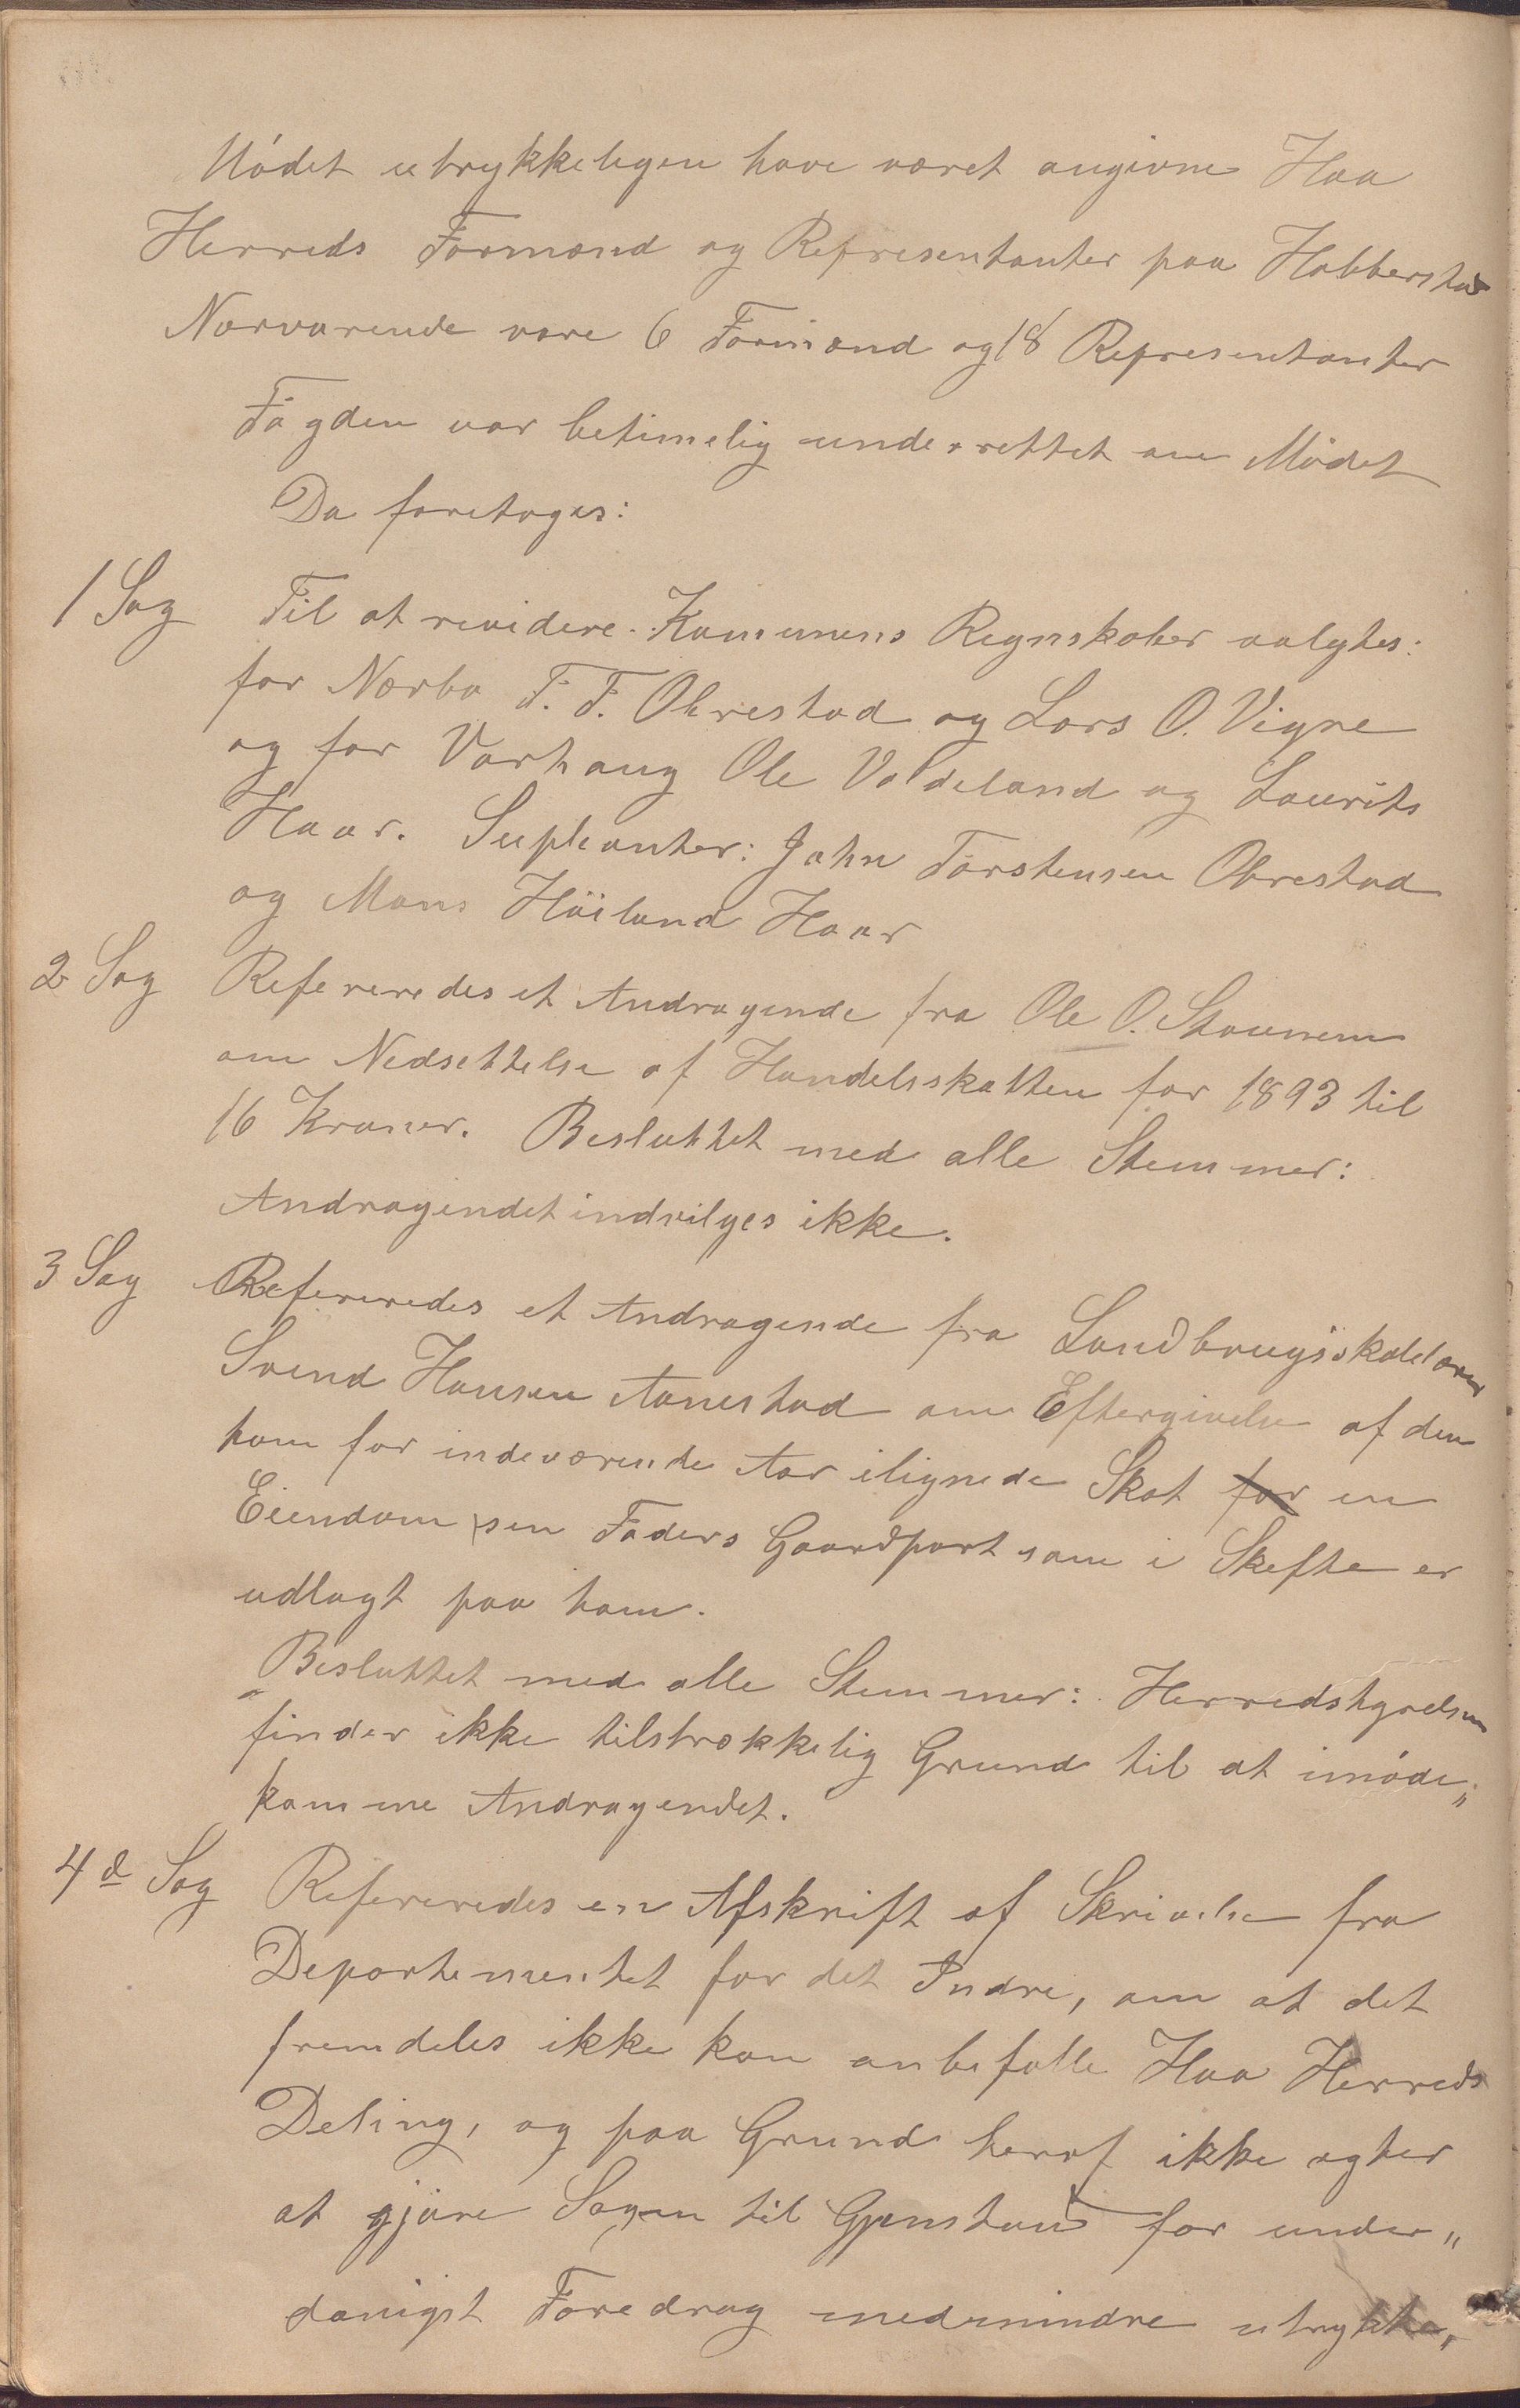 Mødet utrykkeligen have været angivne Haa
Herreds Formænd og Representanter paa Hobberstad
Nærværende vare 6 Formænd og 18 Representanter
Fogden var betimelig underrettet om Mødet
Da foretoges:
1 Sag Til at revidere Kommunens Regnskaber valgtes:
for Nærbø T. T. Obrestad og Lars O. Vigre
og for Varhaug Ole Valdeland og Laurits
Haar. Supleanter: John Torstensen Obrestad
og Mons Höiland Haar
2 Sag Refereredes et Andragende fra Ole O. Stavnem
om Nedsettelse af Handelsskatten for 1893 til
16 Kroner. Besluttet med alle Stemmer:
Andragendet indvilges ikke.
3 Sag Refereredes et Andragende fra Landbrugsskoleelev
Svend Hansen Aanestad om Eftergivelse af den
ham for indeværende Aar ilignede Skat for en
Eiendom sin Faders Gaardpart som i Skefte er
udlagt paa ham.
Besluttet med alle Stemmer: Herredstyrelsen
finder ikke tilstrækkelig Grund til at imøde„
komme Andragendet.
4d Sag Refereredes en Afskrift af Skrivelse fra
Departementet for det Indre, om at det
fremdeles ikke kan anbefalle Haa Herreds
Deling, og paa Grund heraf ikke agter
at gjøre Sagen til Gjenstand for under„
danigst Foredrag medmindre utrykke„